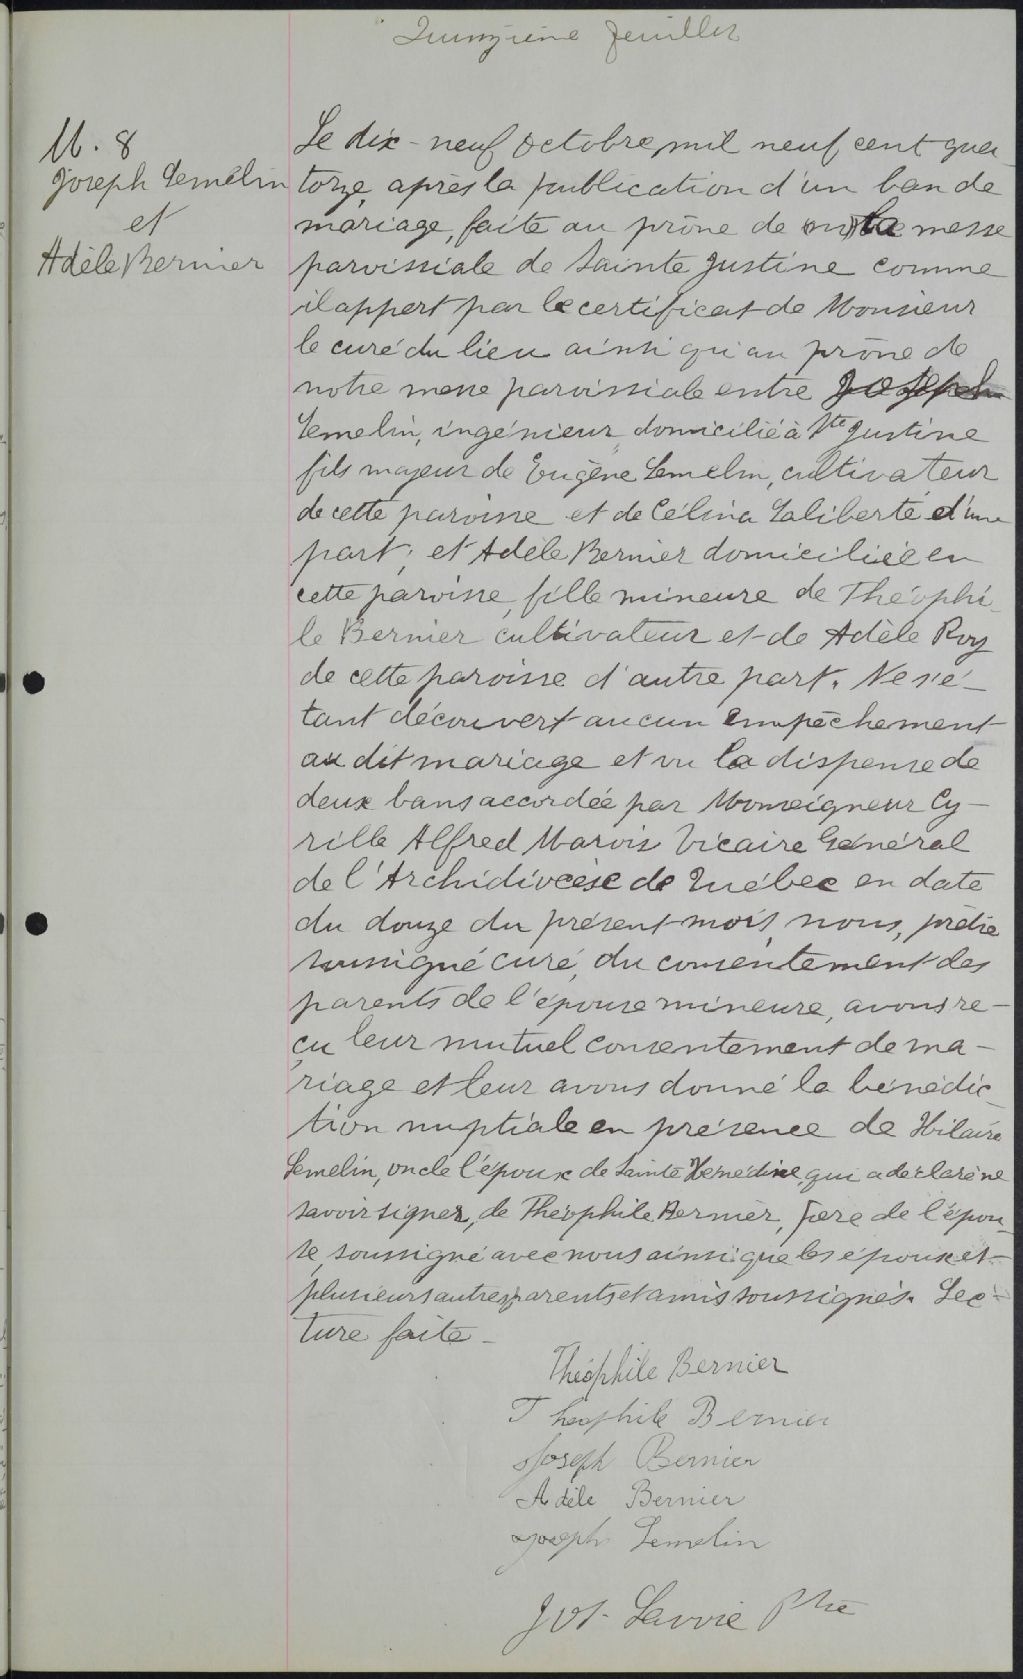 Quinzième feuillet
M. 8
Joseph Lemelin
et
Adèle Bernier
Le dix-neuf octobre, mil neuf cent qua-
torze, après la publication d'un ban de
mariage, faite au prône de la messe
paroissiale de Sainte Justine comme
il appert par le certificat de Monsieur
le curé du lieu ainsi qu'au prône de
notre messe paroissiale entre Joseph
Lemelin, ingénieur domicilié à Ste Justine
fils majeur de Eugène Lemelin, cultivateur
de cette paroisse et de Célina Laliberté d'une
part; et Adèle Bernier domiciliée en
cette paroisse, fille mineure de Théophi-
le Bernier cultivateur et de Adèle Roy
de cette paroisse d'autre part. Ne s'é-
tant découvert aucun empêchement
au dit mariage et vu la dispense de
deux bans accordée par Monseigneur Cy-
rille Alfred Marois Vicaire Général
de l'Archidiocèse de Québec en date
du douze du présent mois, nous, prêtre
soussigné curé, du consentement des
parents de l'épouse mineure, avons re-
çu leur mutuel consentement de ma-
riage et leur avons donné la bénédic-
tion nuptiale en présence de Hilaire
Lemelin, oncle l'époux de Sainte Hénédine, qui a déclaré ne
savoir signer, de Théophile Bernier, père de l'épou-
se, soussigné avec nous ainsi que les époux et
plusieurs autres parents et amis soussignés. Lec-
ture faite -
Théophile Bernier
Theophile Bernier
Joseph Bernier
Adèle Bernier
Joseph Lemelin
Jos. Lavoie Ptre